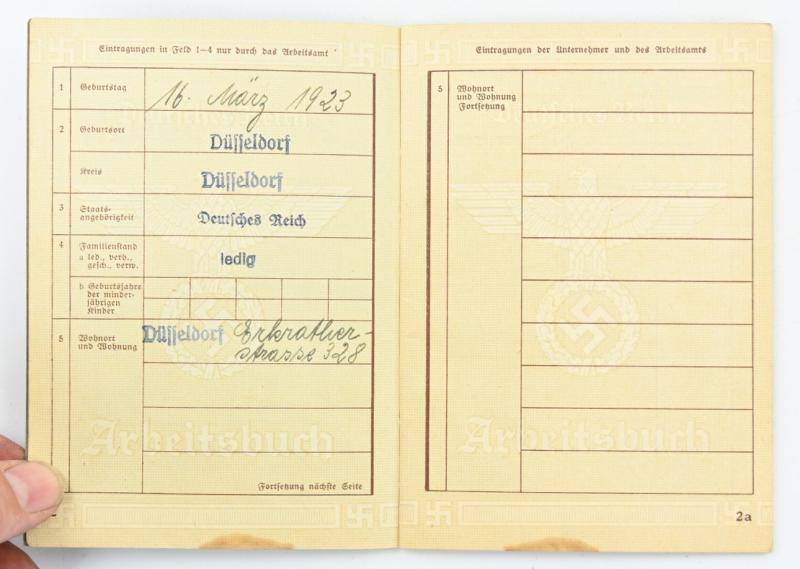 Eintragungen in Feld 1—4 nur durch das Arbeitsamt
1 Geburtstag 16. März 1923
2 Geburtsort Düsseldorf
Kreis Düsseldorf
3 Staats-
angehörigkeit Deutsches Reich
4 Familienstand
a led., verh.,
gesch., verw. ledig
b. Geburtsjahre
der minder-
jährigen
Kinder
5 Wohnort
und Wohnung Düsseldorf Erkrather-
strasse 328
Fortsetzung nächste Seite
Arbeitsbuch
Eintragungen der Unternehmer und des Arbeitsamts
5 Wohnort
und Wohnung
Fortsetzung
Deutsches Reich
Arbeitsbuch
2a